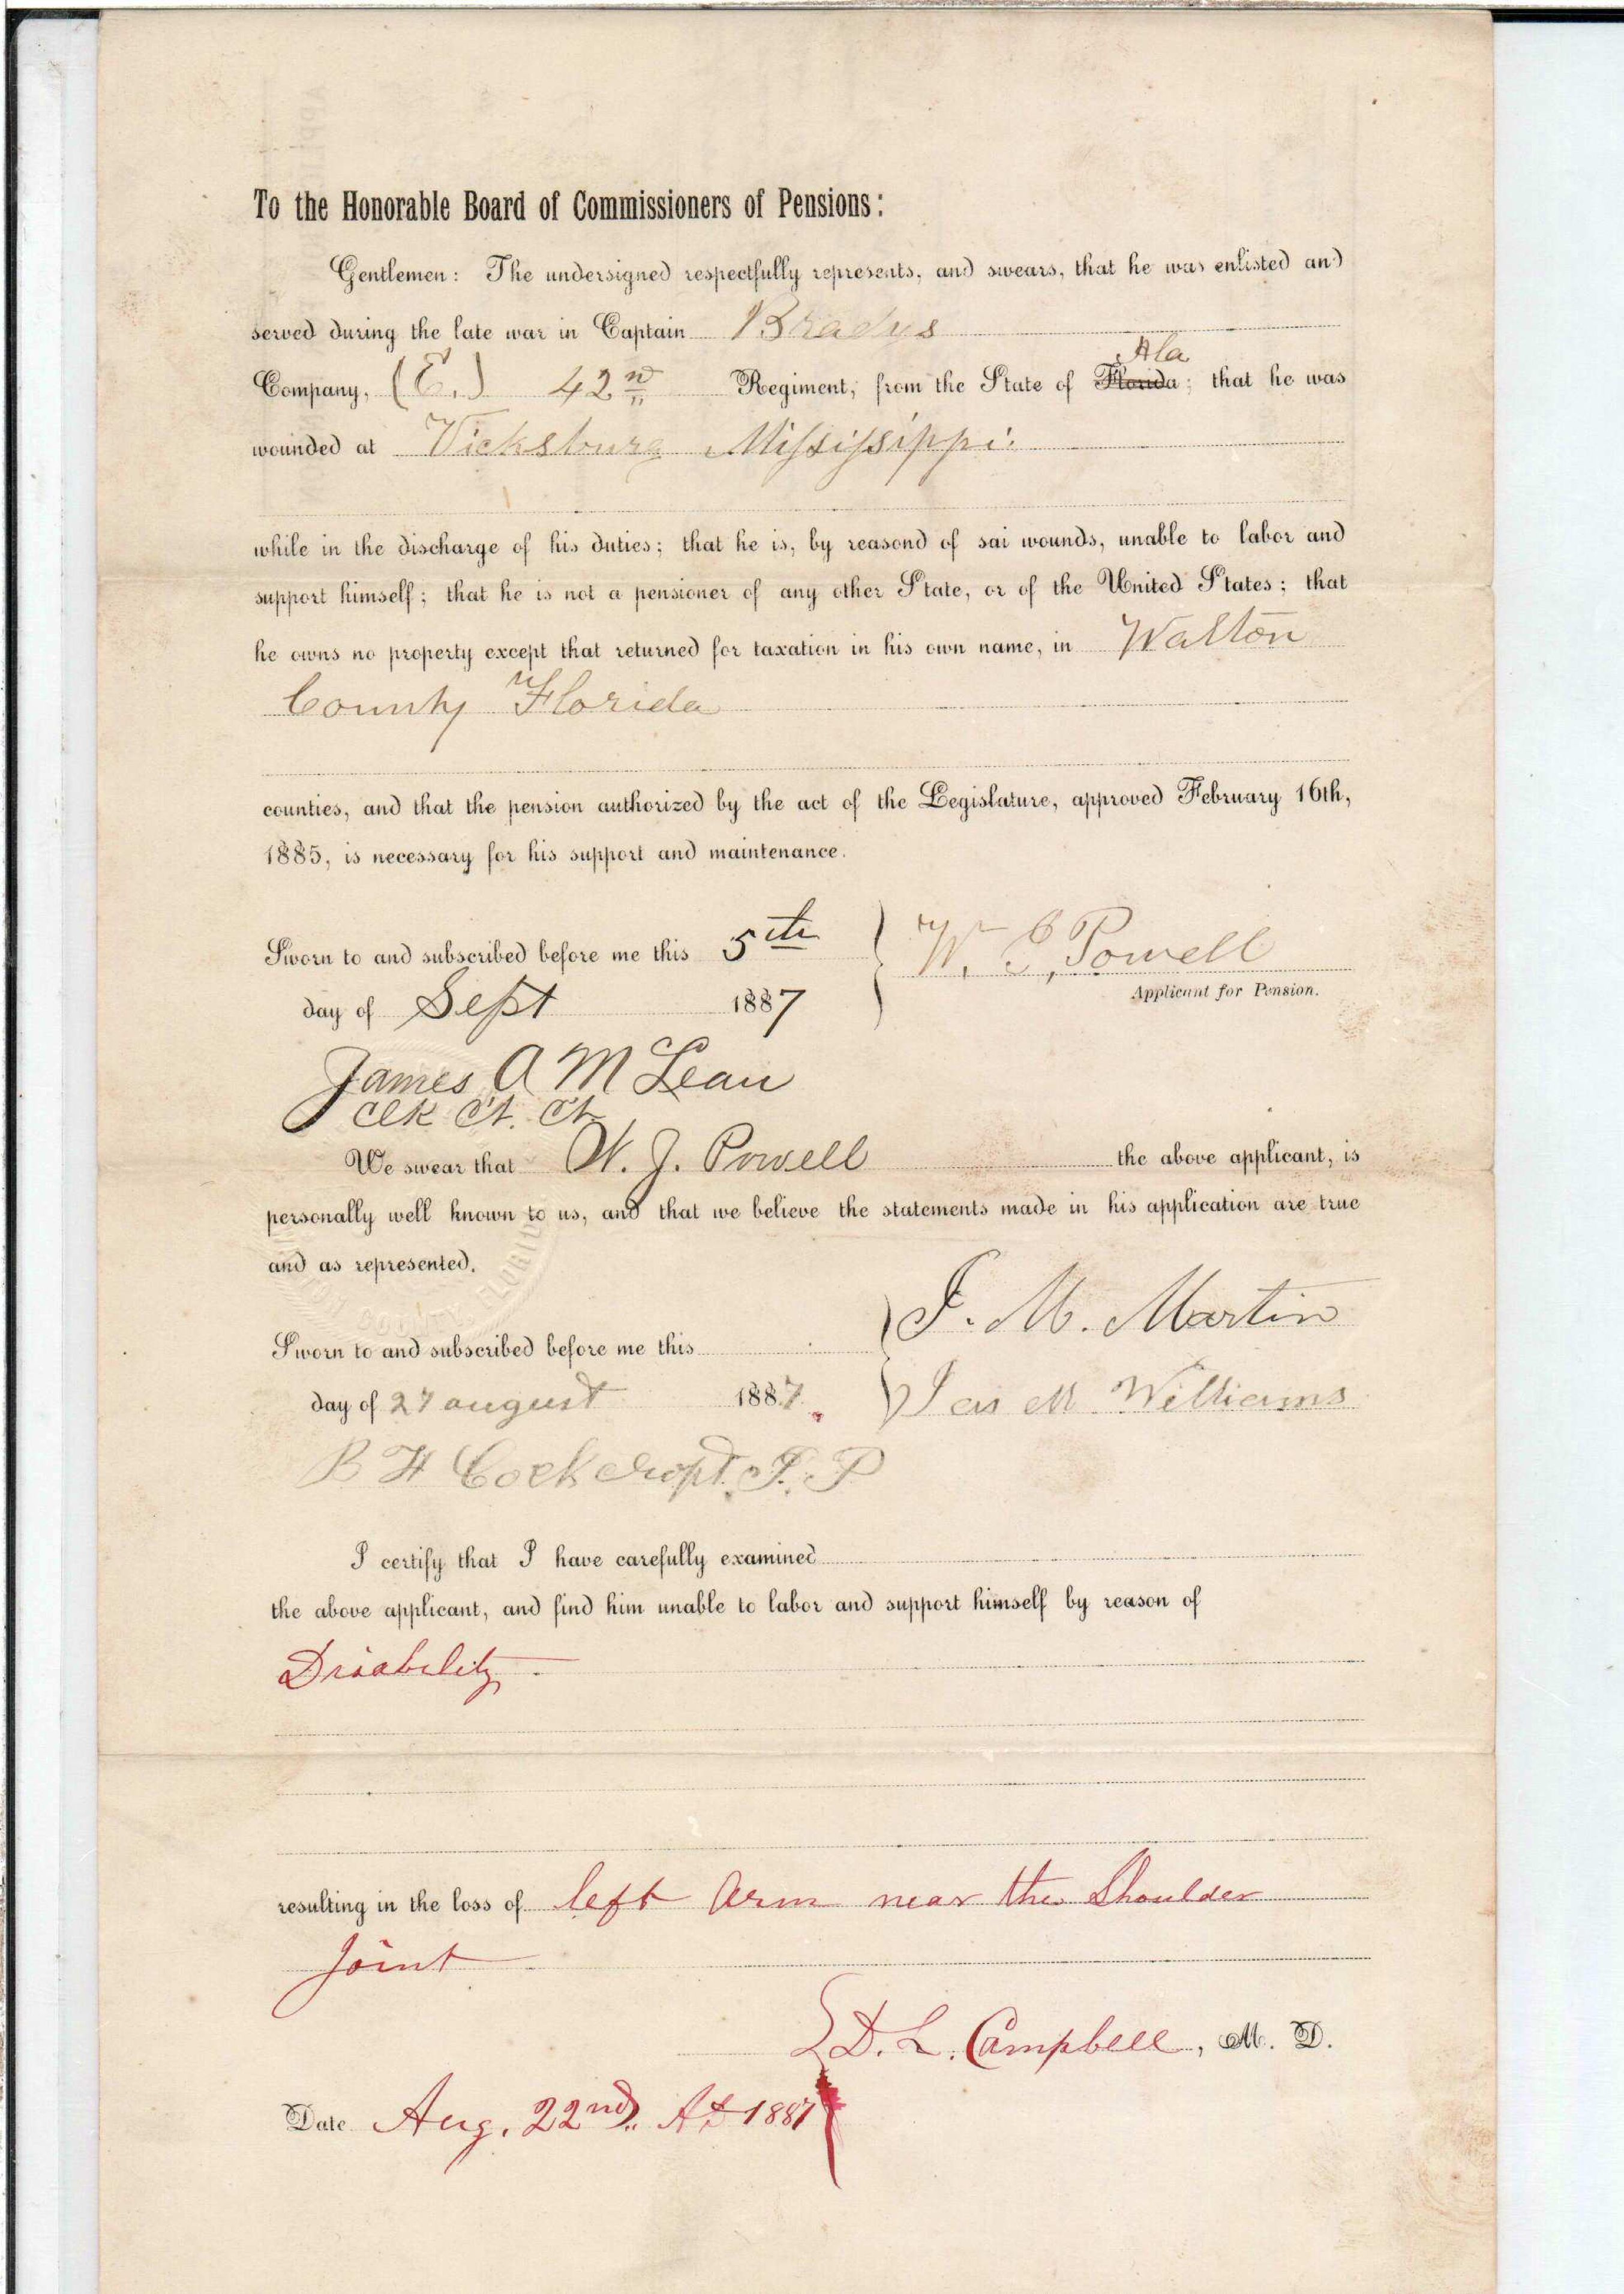 To the Honorable Board of Commissioners of Pensions:
Gentlemen: The undersigned respectfully represents, and swears, that he was enlisted and
served during the late war in Captain Bradys
Ala
Company, (E.) 42nd Regiment, from the State of Florida; that he was
wounded at Vicksburg Mississippi
while in the discharge of his duties; that he is, by reasond of sai wounds, unable to labor and
support himself; that he is not a pensioner of any other State, or of the United States; that
he owns no property except that returned for taxation in his own name, in Walton
County Florida
counties, and that the pension authorized by the act of the Legislature, approved February 16th,
1885, is necessary for his support and maintenance.
Sworn to and subscribed before me this 5th
W. Powell
Applicant for Pension.
day of Sept 1887
James A McLean
Clk Ct. Ct
We swear that W. J. Powell the above applicant, is
personally well known to us, and that we believe the statements made in his application are true
and as represented.
J. M. Martin
Sworn to and subscribed before me this
day of 27 august 1887. Jas M Williams
B H Cockcroft J. P
I certify that I have carefully examined
the above applicant, and find him unable to labor and support himself by reason of
Disability
resulting in the loss of left Arm near the Shoulder
Joint
D. L. Campbell, M. D.
Date Aug. 22nd. AD 1887